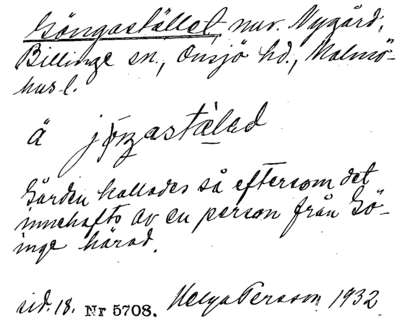 Göngastället, nuv. Nygård,
Billinge sn, Onsjö hd., Malmö-
hus l.
å jöŋastàləd
Gården kallades så eftersom det
innehafts av en person från Gö-
inge härad.
sid. 18. Nr 5708. Helga Persson 1932